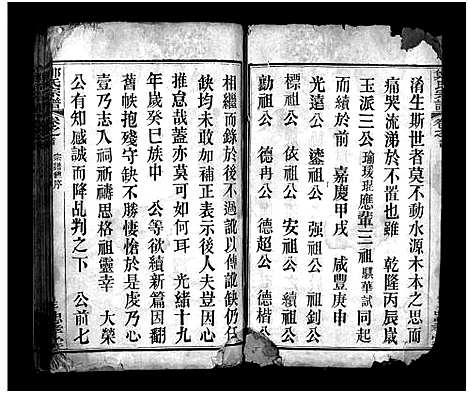 淆生斯世者莫不動水源木本之思而
痛哭流涕於不置也維 乾隆丙辰歲
玉派三公瑜瑗琨應輩三祖騏華試同
而續於前 嘉慶甲戌 咸豐庚申
公光遠公 鎏祖公 强祖公 祖釗公
標祖公 依祖公 安祖公 續祖公
動祖公 德冉公 德超公 德楷公
相繼而錄於後不過訛以傳訛缺仍任
缺均未敢加補正表示後人夫豈因心
推意哉蓋亦莫可如何耳 光緒十九
年歲癸巳族中 公等欲續新篇因翻
舊帙抱殘守缺不勝悽愴於是虔乃心
壹乃志入祠禱思格祖靈幸 大榮
公有知感誠而降乩判之下 公前七
氏宗譜 卷之首 宗譜 序
氏宗譜 卷之首